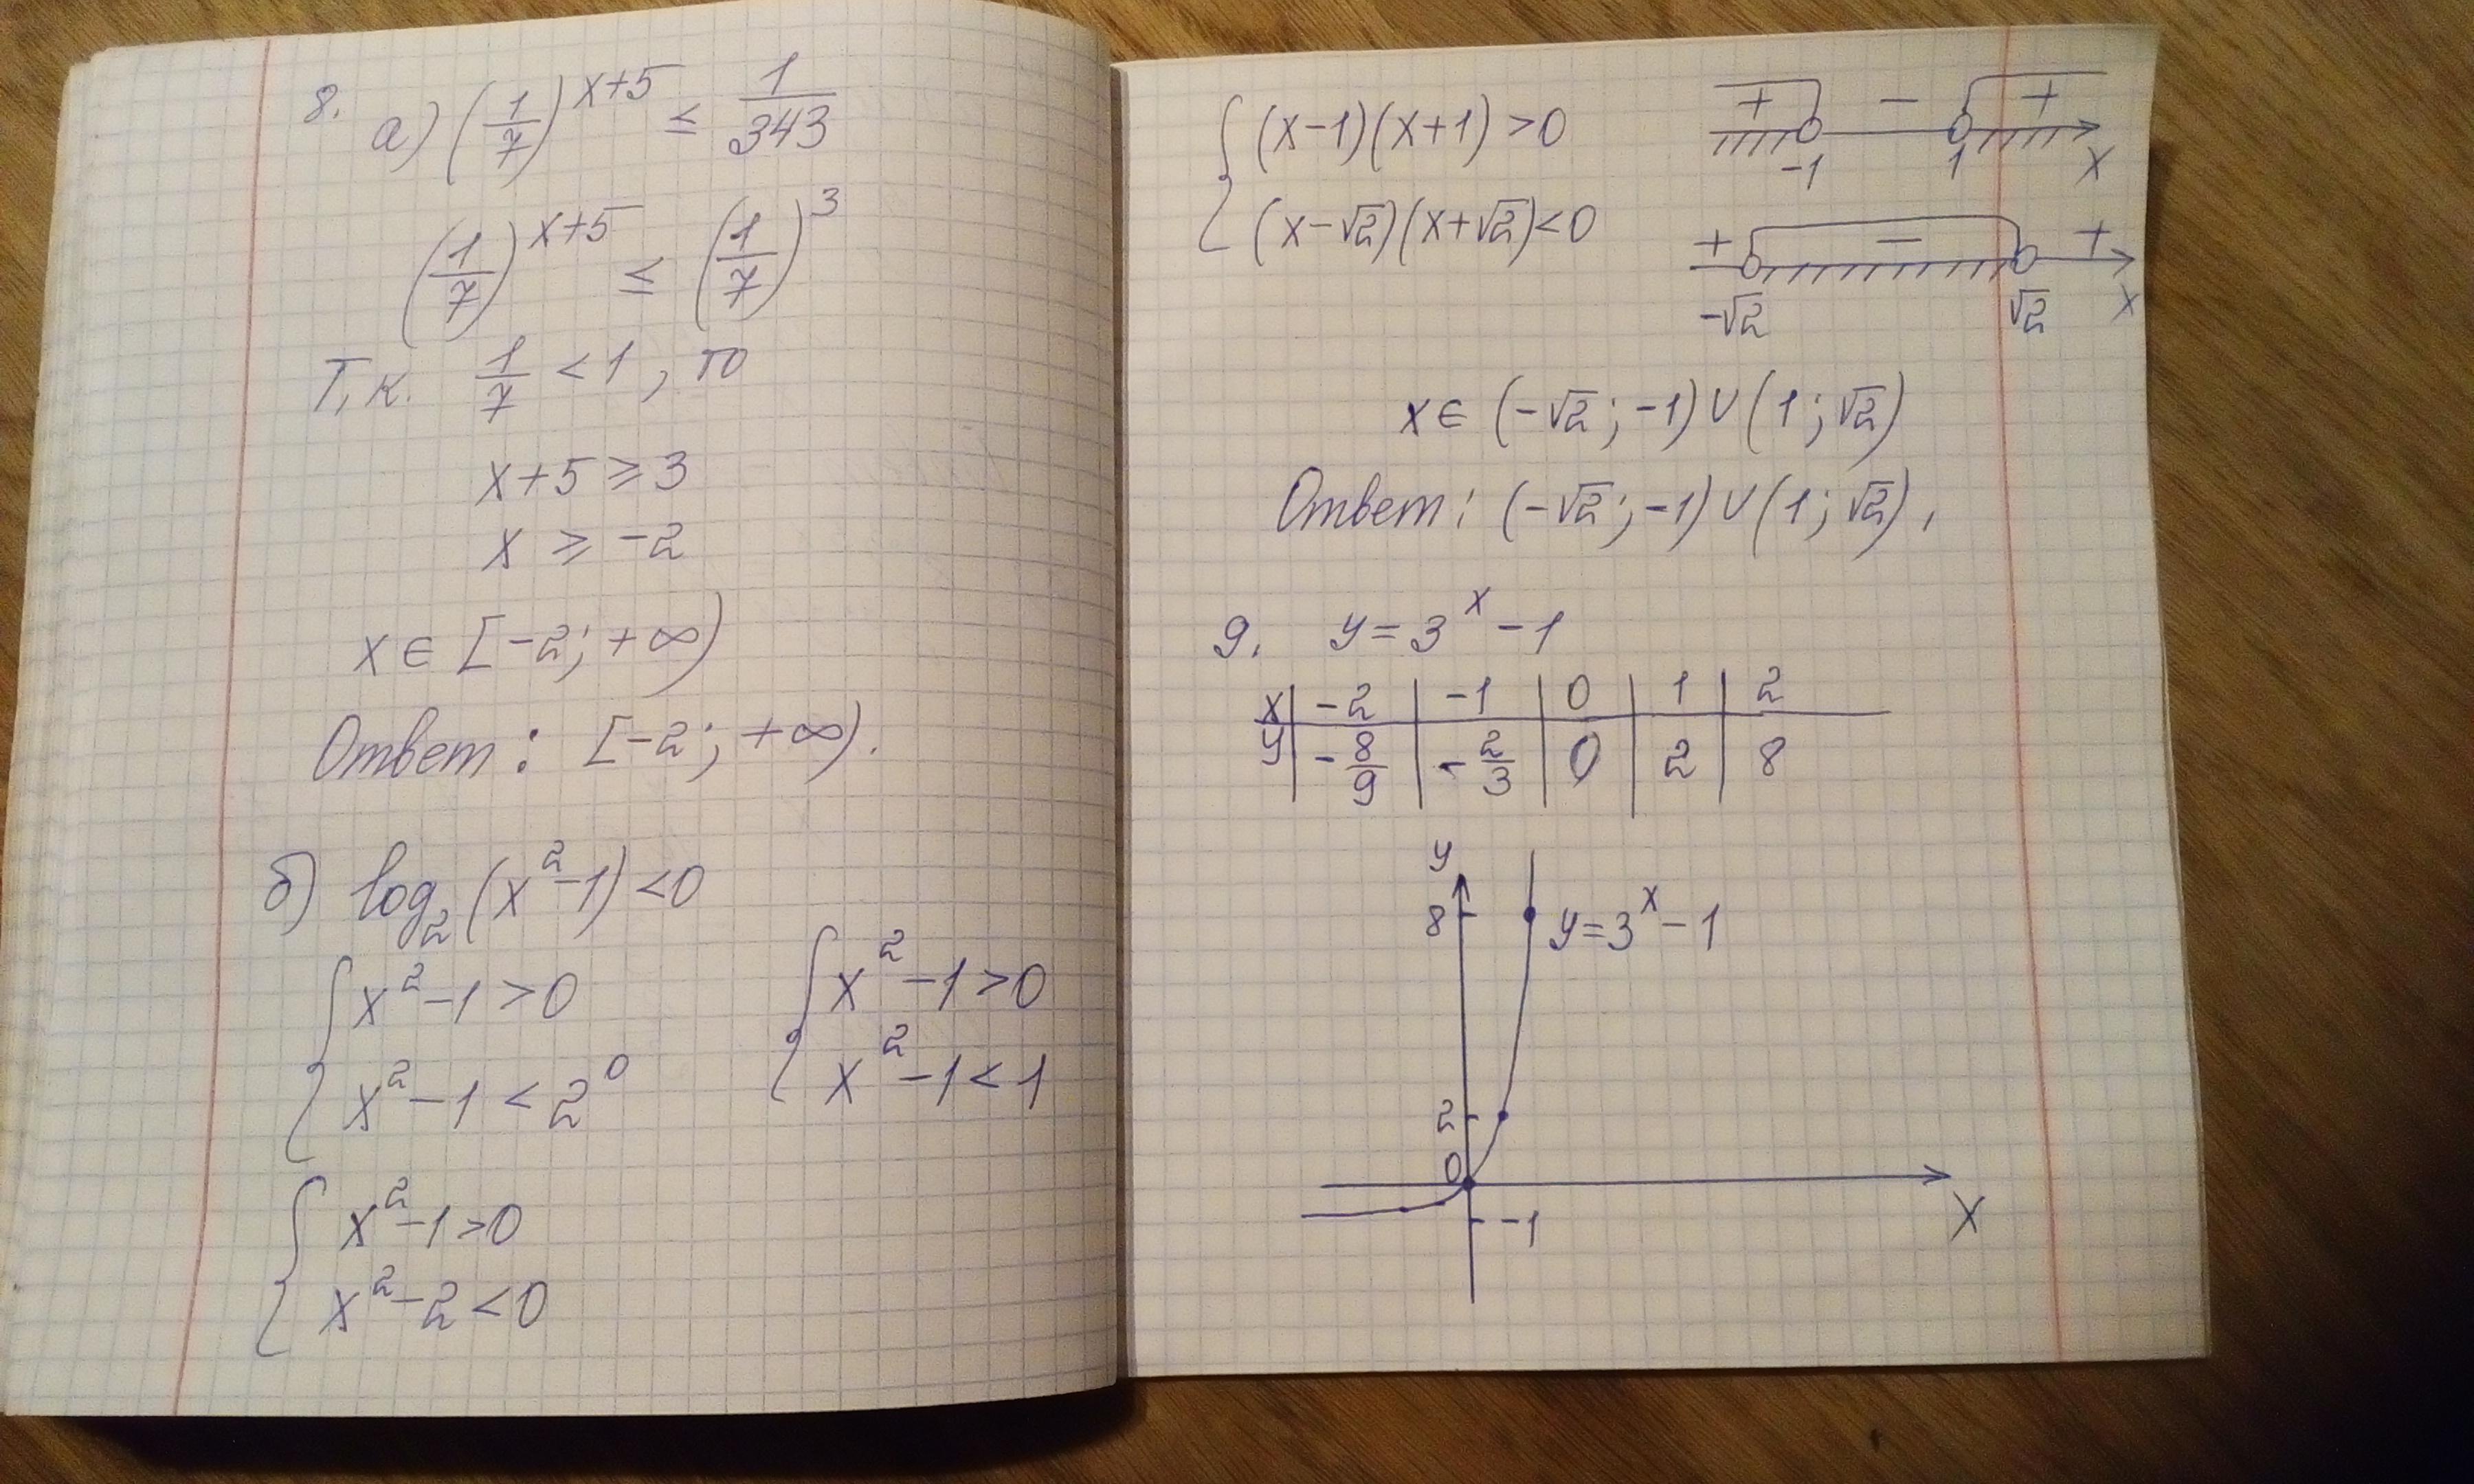 8. а) (1/7)^(x+5) ≤ 1/343
(1/7)^(x+5) ≤ (1/7)^3
Т.к. 1/7 < 1, то
x+5 ≥ 3
x ≥ -2
x ∈ [-2; +∞)
Ответ: [-2; +∞).
б) log₂(x²-1) < 0
{ x²-1 > 0
{ x²-1 < 2⁰
{ x²-1 > 0
{ x²-1 < 1
{ x²-1 > 0
{ x²-2 < 0
{ (x-1)(x+1) > 0
+ - +
-1 1 x
{ (x-√2)(x+√2) < 0
+ - +
-√2 √2 x
x ∈ (-√2; -1) ∪ (1; √2)
Ответ: (-√2; -1) ∪ (1; √2).
9. y = 3^x - 1
x | -2 | -1 | 0 | 1 | 2
y | -8/9 | -2/3 | 0 | 2 | 8
y
8
y = 3^x - 1
2
0
-1
X